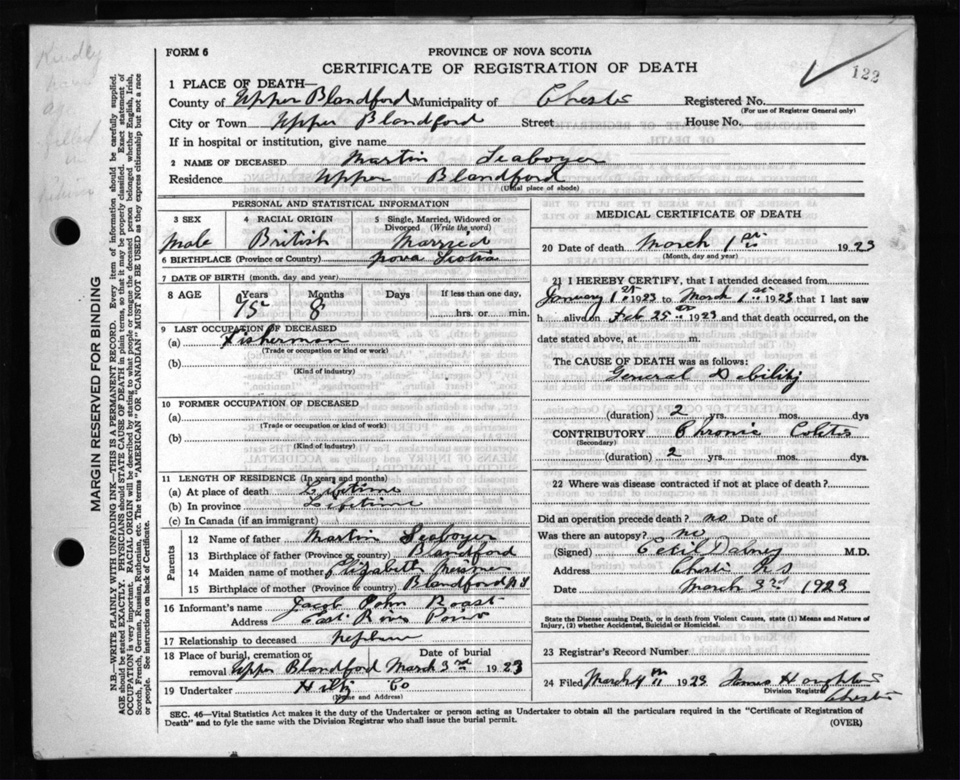 FORM 6
PROVINCE OF NOVA SCOTIA
CERTIFICATE OF REGISTRATION OF DEATH
122
1 PLACE OF DEATH—
County of Upper Blandford Municipality of Chester Registered No.
(For use of Registrar General only)
City or Town Upper Blandford Street House No.
If in hospital or institution, give name
2 NAME OF DECEASED Martin Seaboyer
Residence Upper Blandford
(Usual place of abode)
PERSONAL AND STATISTICAL INFORMATION
3 SEX 4 RACIAL ORIGIN 5 Single, Married, Widowed or Divorced (Write the word)
Male British Married
6 BIRTHPLACE (Province or Country) Nova Scotia
7 DATE OF BIRTH (month, day and year)
8 AGE Years Months Days If less than one day,
75 8 hrs. or min.
9 LAST OCCUPATION OF DECEASED
(a) Fisherman
(Trade or occupation or kind or work)
(b)
(Kind of industry)
10 FORMER OCCUPATION OF DECEASED
(a)
(Trade or occupation or kind or work)
(b)
(Kind of industry)
11 LENGTH OF RESIDENCE (In years and months)
(a) At place of death Lifetime
(b) In province Lifetime
(c) In Canada (if an immigrant)
Parents
12 Name of father Martin Seaboyer
13 Birthplace of father (Province or country) Blandford
14 Maiden name of mother Elizabeth Meisner
15 Birthplace of mother (Province or country) Blandford N S
16 Informant's name Jacob John
Address East
17 Relationship to deceased Nephew
18 Place of burial, cremation or removal Date of burial
Upper Blandford March 3rd 1923
19 Undertaker Hiltz Co
(Name and Address)
MEDICAL CERTIFICATE OF DEATH
20 Date of death March 1st 1923
(Month, day and year)
21 I HEREBY CERTIFY, that I attended deceased from
January 1st 1923 to March 1st 1923 that I last saw
h alive on Feb 25th 1923 and that death occurred, on the
date stated above, at m.
The CAUSE OF DEATH was as follows:
General Debility
(duration) 2 yrs. mos. dys
CONTRIBUTORY Chronic Colitis
(Secondary)
(duration) 2 yrs. mos. dys
22 Where was disease contracted if not at place of death?
Did an operation precede death? no Date of
Was there an autopsy? no
(Signed) Cecil M.D.
Address Chester N S
Date March 3rd 1923
State the Disease causing Death, or in death from Violent Causes, state (1) Means and Nature of
Injury, (2) whether Accidental, Suicidal or Homicidal.
23 Registrar's Record Number
24 Filed March 4th 1923 Houghton
Division Registrar
Chester
SEC. 46—Vital Statistics Act makes it the duty of the Undertaker or person acting as Undertaker to obtain all the particulars required in the "Certificate of Registration of
Death" and to fyle the same with the Division Registrar who shall issue the burial permit.
(OVER)
MARGIN RESERVED FOR BINDING
N.B.—WRITE PLAINLY WITH UNFADING INK—THIS IS A PERMANENT RECORD. Every item of information should be carefully supplied.
AGE should be stated EXACTLY. PHYSICIANS should STATE CAUSE OF DEATH in plain terms, so that it may be properly classified. Exact statement of
OCCUPATION is very important. RACIAL ORIGIN will be described by stating to what people or tongue the deceased person belonged whether English, Irish,
Scotch, French, German, Russian, Ruthenian, etc. The terms "AMERICAN" OR "CANADIAN" MUST NOT BE USED as they express citizenship but not a race
or people. See instructions on back of Certificate.